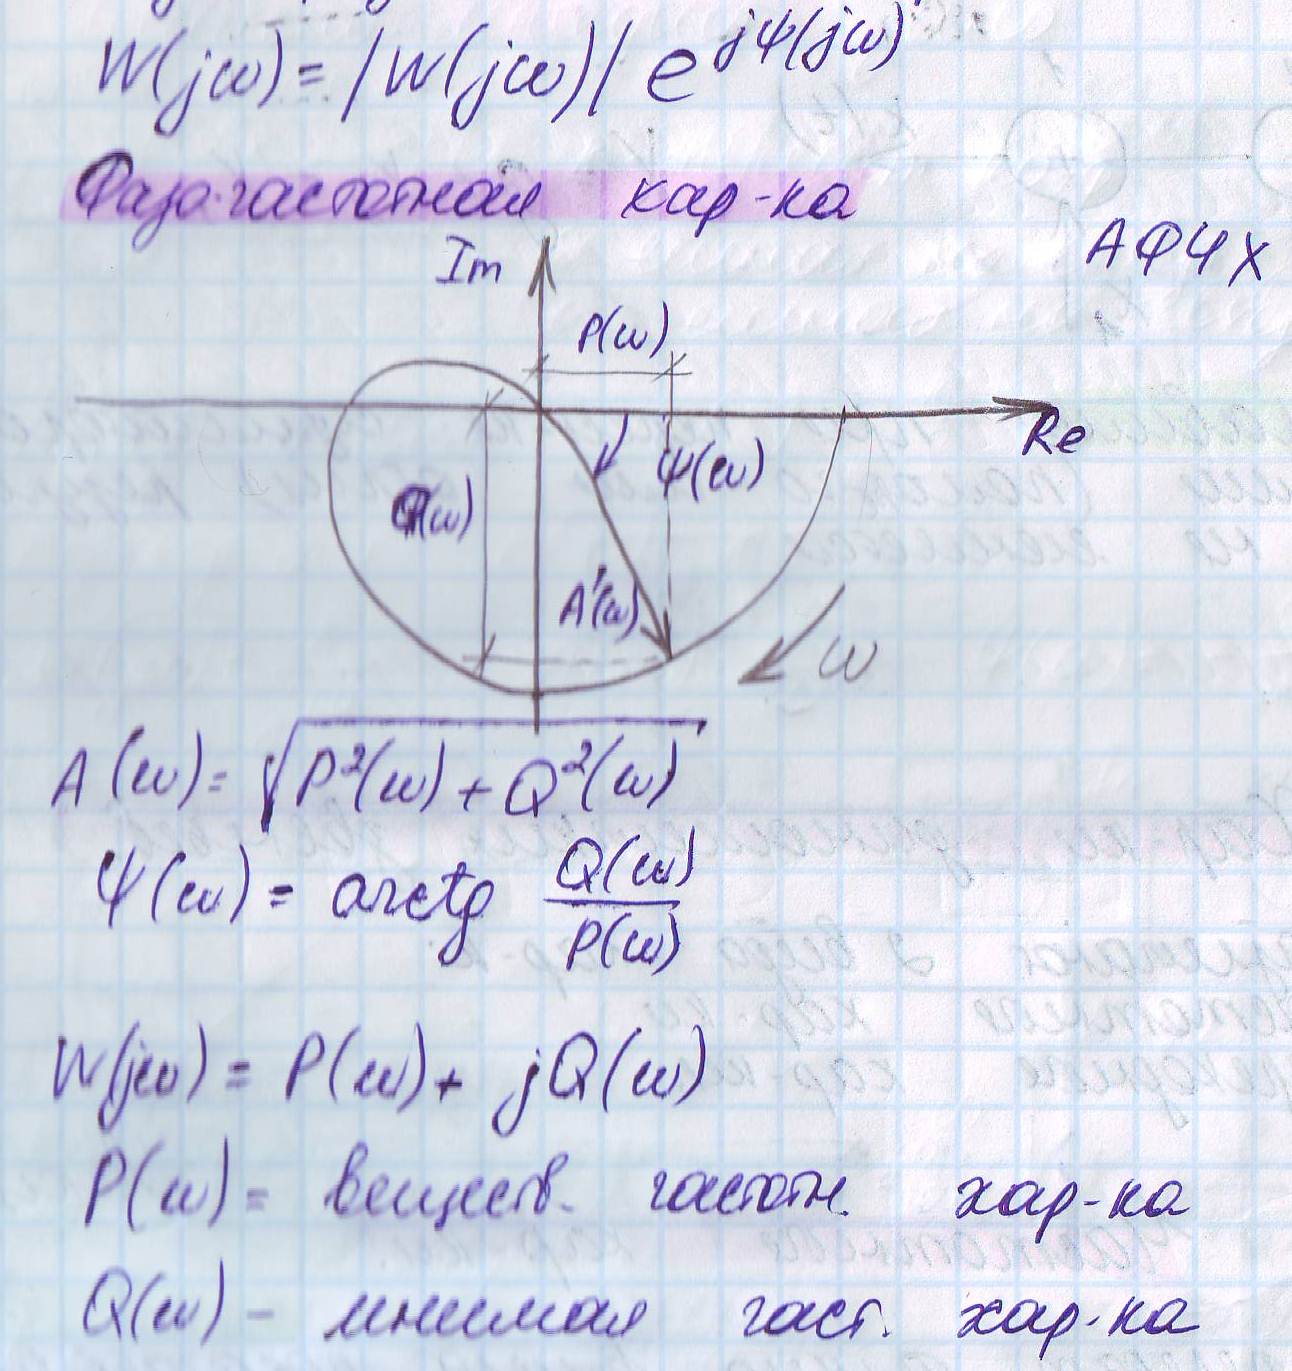 W(jω) = |W(jω)| e^{jψ(jω)}
Фазо-частотная хар-ка
АФЧХ
Im
P(ω)
Re
ψ(ω)
Q(ω)
A(ω)
ω
A(ω) = √(P²(ω) + Q²(ω))
ψ(ω) = arctg Q(ω)/P(ω)
W(jω) = P(ω) + jQ(ω)
P(ω) = веществ. частотн. хар-ка
Q(ω) – мнимая част. хар-ка